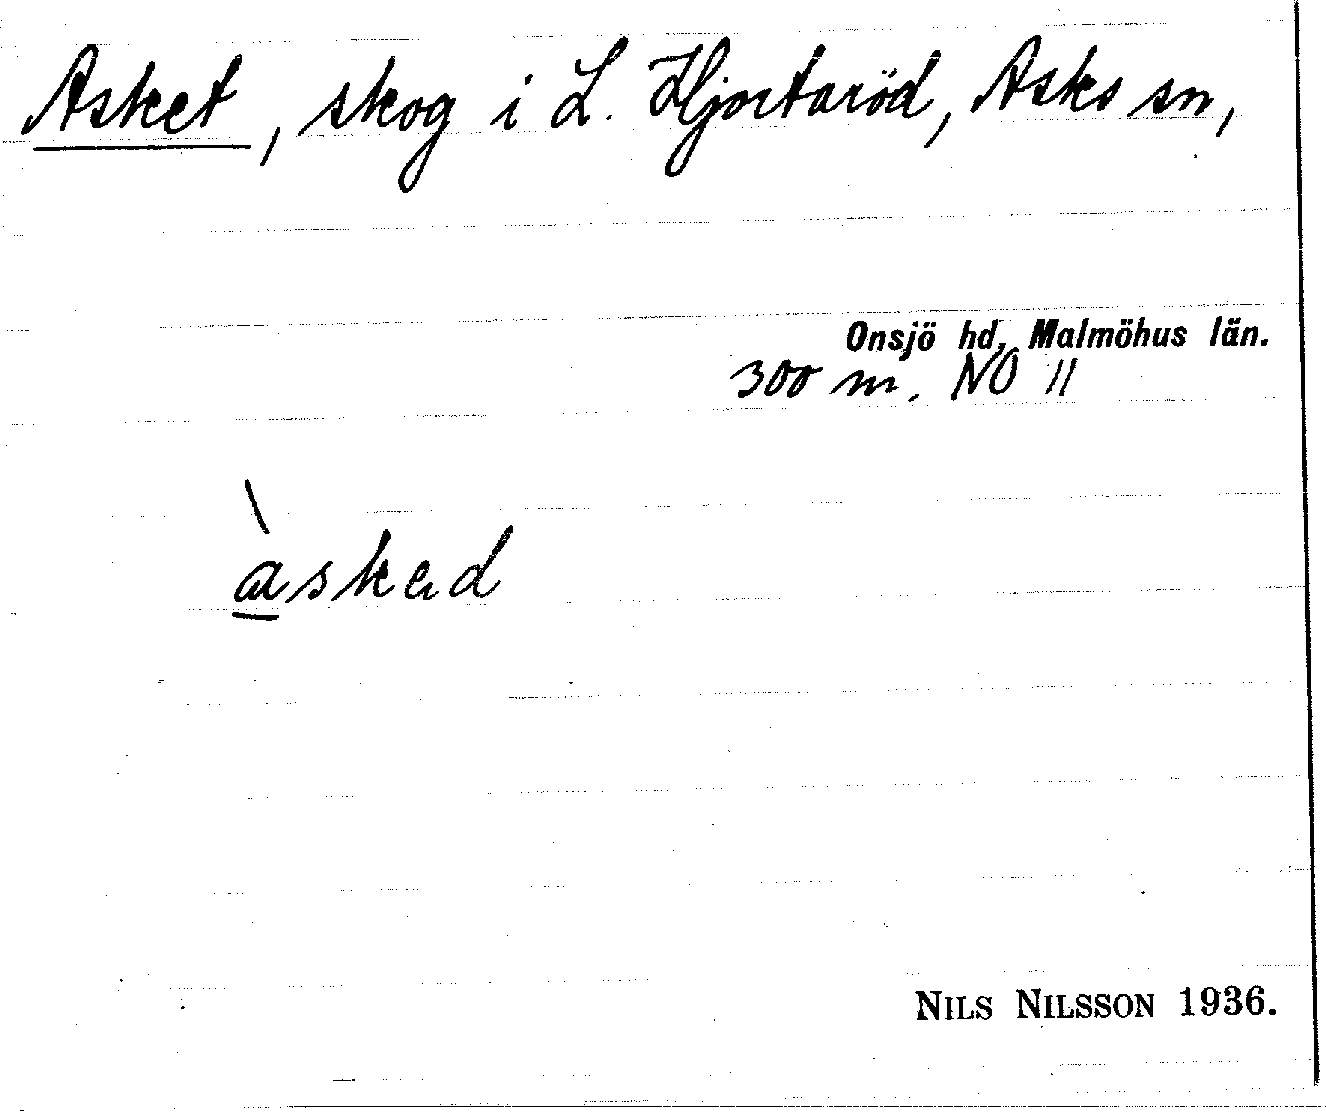 Asket, skog i L. Hjortaröd, Asks sn,
Onsjö hd, Malmöhus län.
300 m. NO 11
àskəd
NILS NILSSON 1936.